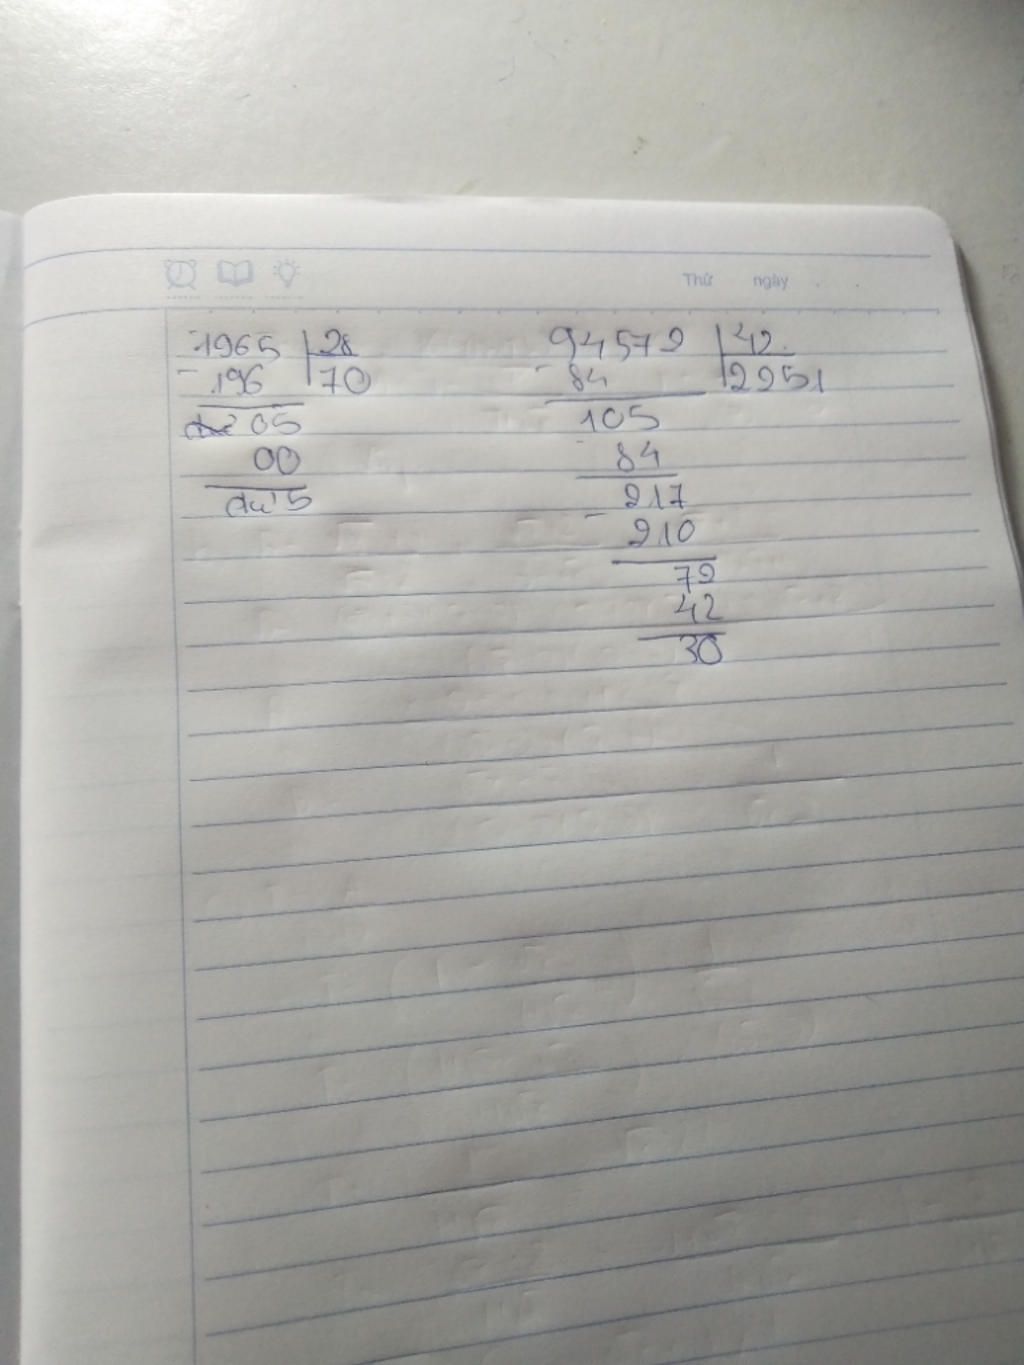 Thứ ngày
1965 28
- 196 70
05
00
dư 5
94572 42
- 84 2251
105
- 84
217
- 210
72
42
30